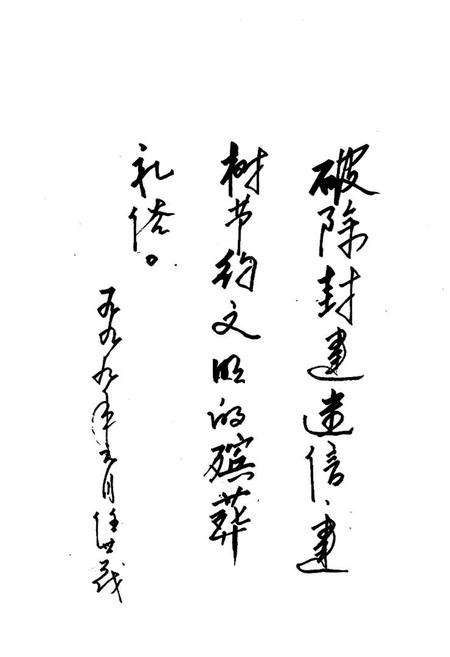 破除封建迷信、建
树节约文明的殡葬
礼俗。
一九九九年月